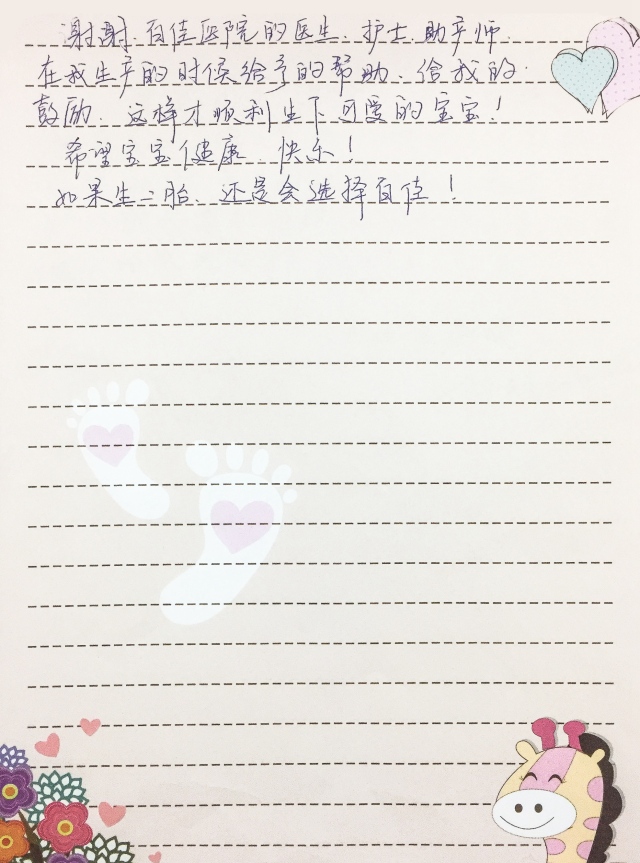 谢谢.百佳医院的医生、护士.助产师.
在我生产的时候给予的帮助、给我的
鼓励.这样才顺利生下可爱的宝宝!
希望宝宝健康.快乐!
如果生二胎、还是会选择百佳!